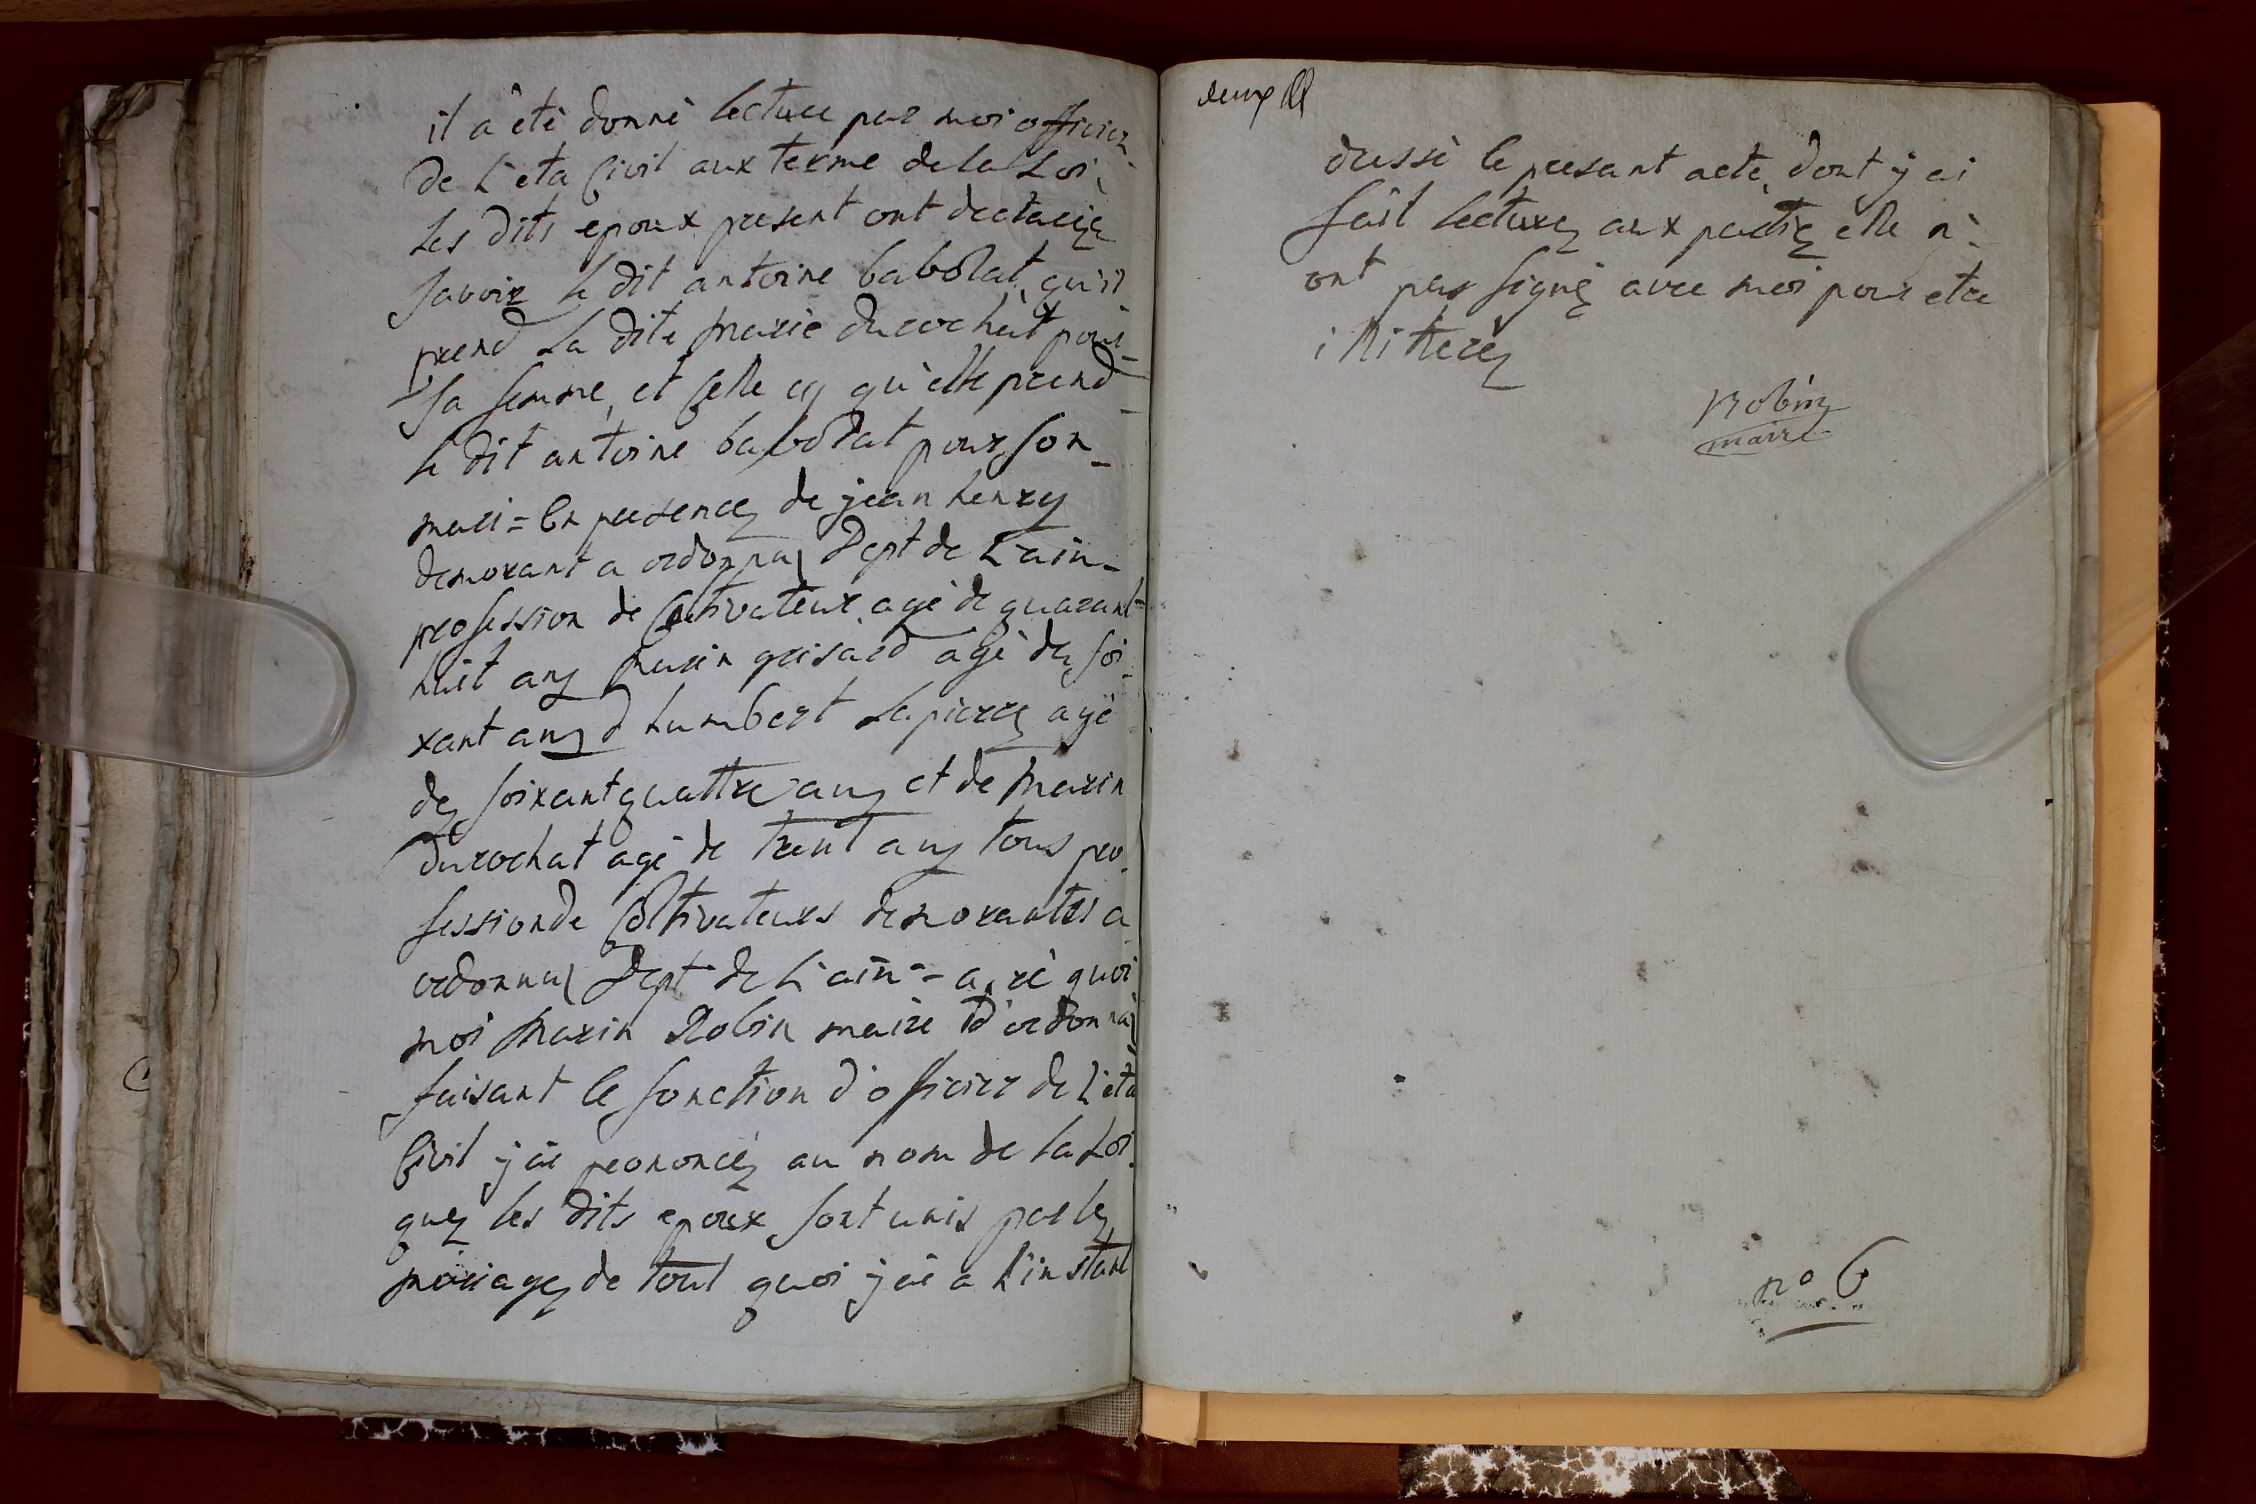 il a été donné lecture par moi officier
de L'eta Civil aux terme de la Loi,
Les dits epoux present ont declarée
savoir le dit antoine babolat, qu'il
prend La dite Marie durochat pour
sa femme, et Celle cy qu'elle prend
le dit antoine babolat pour son
mari = En presence de jean henry
demorant a ordonnas Dept de L'ain
profession de Cultivateur agé de quarant
huit ans Marin grisard agé de soi
xant ans d humbert Lapierre agé
de soixant quattre ans et de Marin
durochat agé de trent ans tous pro
fession de Coltivateurs demorantes a
ordonnas Dept de L'ain = a, ré quoi
moi Marin Robin maire d'ordonnas
faisant le fonction d'officier de L'eta
Civil j'ai prononcé au nom de la Loi
que les dits epoux sont unis par le
mariage de tout quoi j'ai a L'instant
deux
dussé le presant acte, dont j ai
fait lecture aux partie elle n'
ont pas signé avec moi pour etre
illiteré
Robin
maire
n° 6